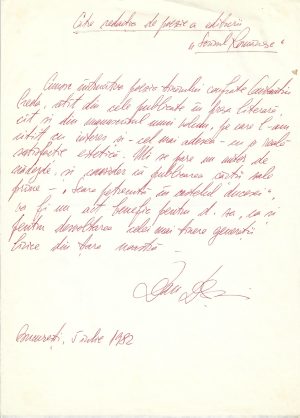 Către redacția de poezie a editurii
„Scrisul Românesc“
Cunosc îndeaproape poezia tînărului confrate Constantin
Preda, atît din cele publicate în presa literară,
cît și din manuscrisul unui volum, pe care l-am
citit cu interes și - cel mai adesea - cu o reală
satisfacție estetică. Mi se pare un autor de
nădejde, și consider că publicarea cărții sale
prime - „Seara petrecută în
va fi un act benefic pentru d. sa, ca și
pentru dezvoltarea celei mai tinere generații
lirice din țara noastră. -
București, 5 iulie 1982